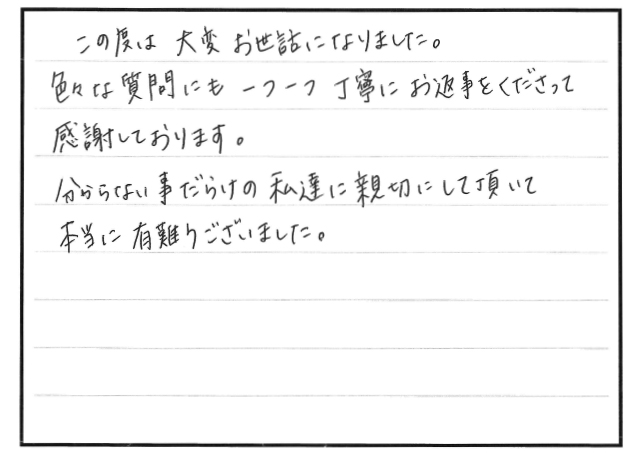 この度は 大変 お世話になりました。
色々な質問にも 一つ一つ 丁寧に お返事をくださって
感謝しております。
分からない事だらけの 私達に 親切にして頂いて
本当に 有難うございました。